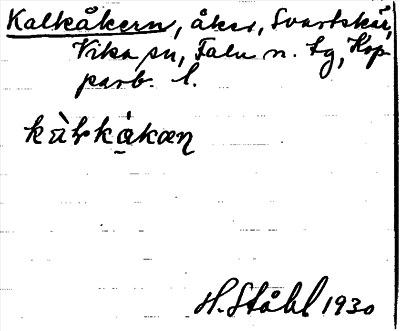 Kalkåkern, åker, Svartskär,
Vika sn, Falu n. tg, Kop-
parb. l.
kàlkåkæn
H. Ståhl 1930